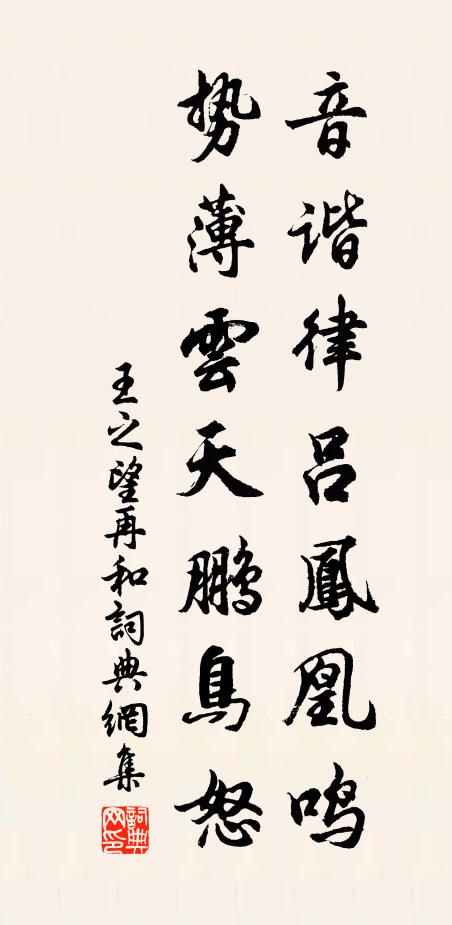 音谐律吕鳳凰鸣
势薄雲天鹏鳥怒
王之望再和詞典網集
詞典网印